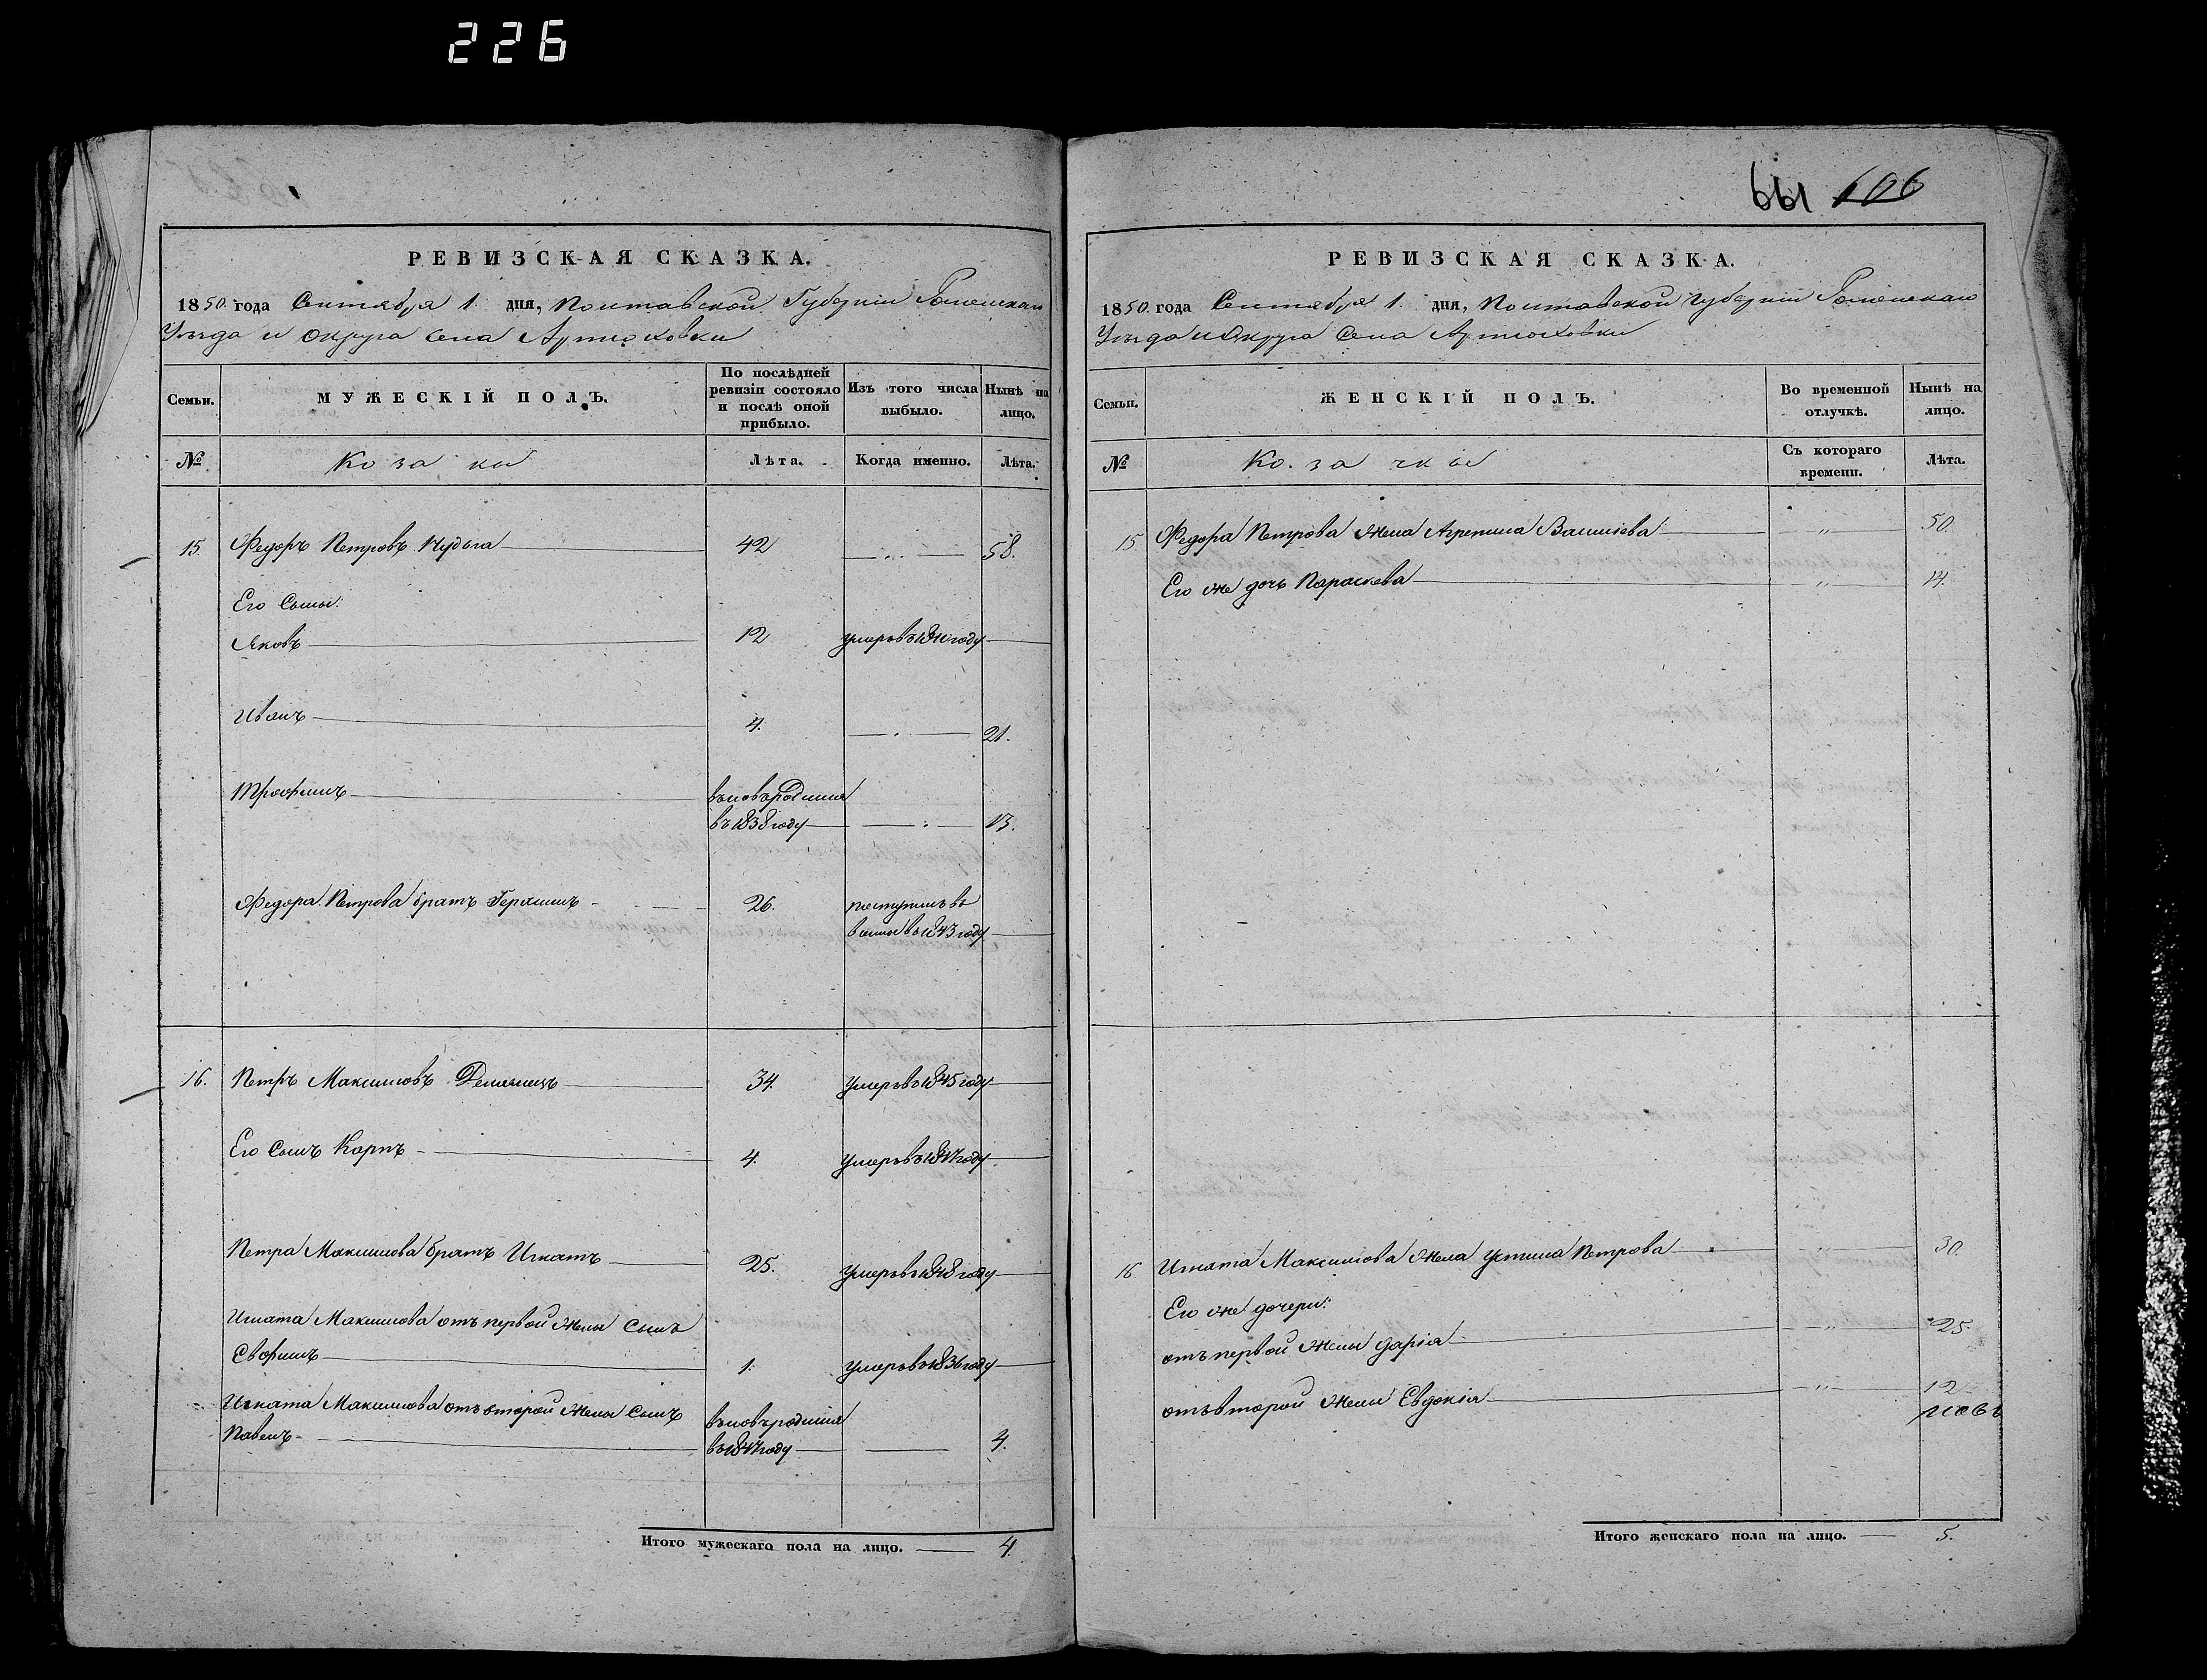 226
661 606
РЕВИЗСКАЯ СКАЗКА.
1850. года Сентября 1. дня, Полтавской Губерніи Роменскаго
Уѣзда и Округа Села Артюховки
Семьи. МУЖЕСКІЙ ПОЛЪ. По послѣдней ревизіи состояло и послѣ оной прибыло. Изъ того числа выбыло. Нынѣ на лицо.
№ Козаки Лѣта. Когда именно. Лѣта.
15. Федоръ Петровъ 42 58.
Его Сыны:
Яковъ 12 умеръ въ году
Иванъ 4. 21.
Трофимъ вновь родился
въ 1838 году 13.
Федора Петрова братъ Герасимъ 26. поступилъ въ
въ 1843 году
16. Петръ Максимовъ 34. Умеръ въ 1845 году
Его Сынъ Карпъ 4. Умеръ въ году
Петра Максимова братъ Игнатъ 25. Умеръ въ 1848 году
Игната Максимова отъ первой жены Сынъ
1. Умеръ въ 1836 году
Игната Максимова отъ второй жены Сынъ вновь родился
Павелъ въ 1847 году 4.
Итого мужескаго пола на лицо. 4.
РЕВИЗСКАЯ СКАЗКА.
1850. года Сентября 1. дня, Полтавской Губерніи Роменскаго
Уѣзда и Округа Села Артюховки
Семьи. ЖЕНСКІЙ ПОЛЪ. Во временной отлучкѣ. Нынѣ на лицо.
№ Козачки Съ котораго времени. Лѣта.
15 Федора Петрова жена Агрепина Васильева 50.
Его же дочь Параскева 14.
16 Игната Максимова жена Устина Петрова 30.
Его же дочери:
отъ первой жены Дарія 25.
отъ второй жены Евдокія 12
Итого женскаго пола на лицо. 5.